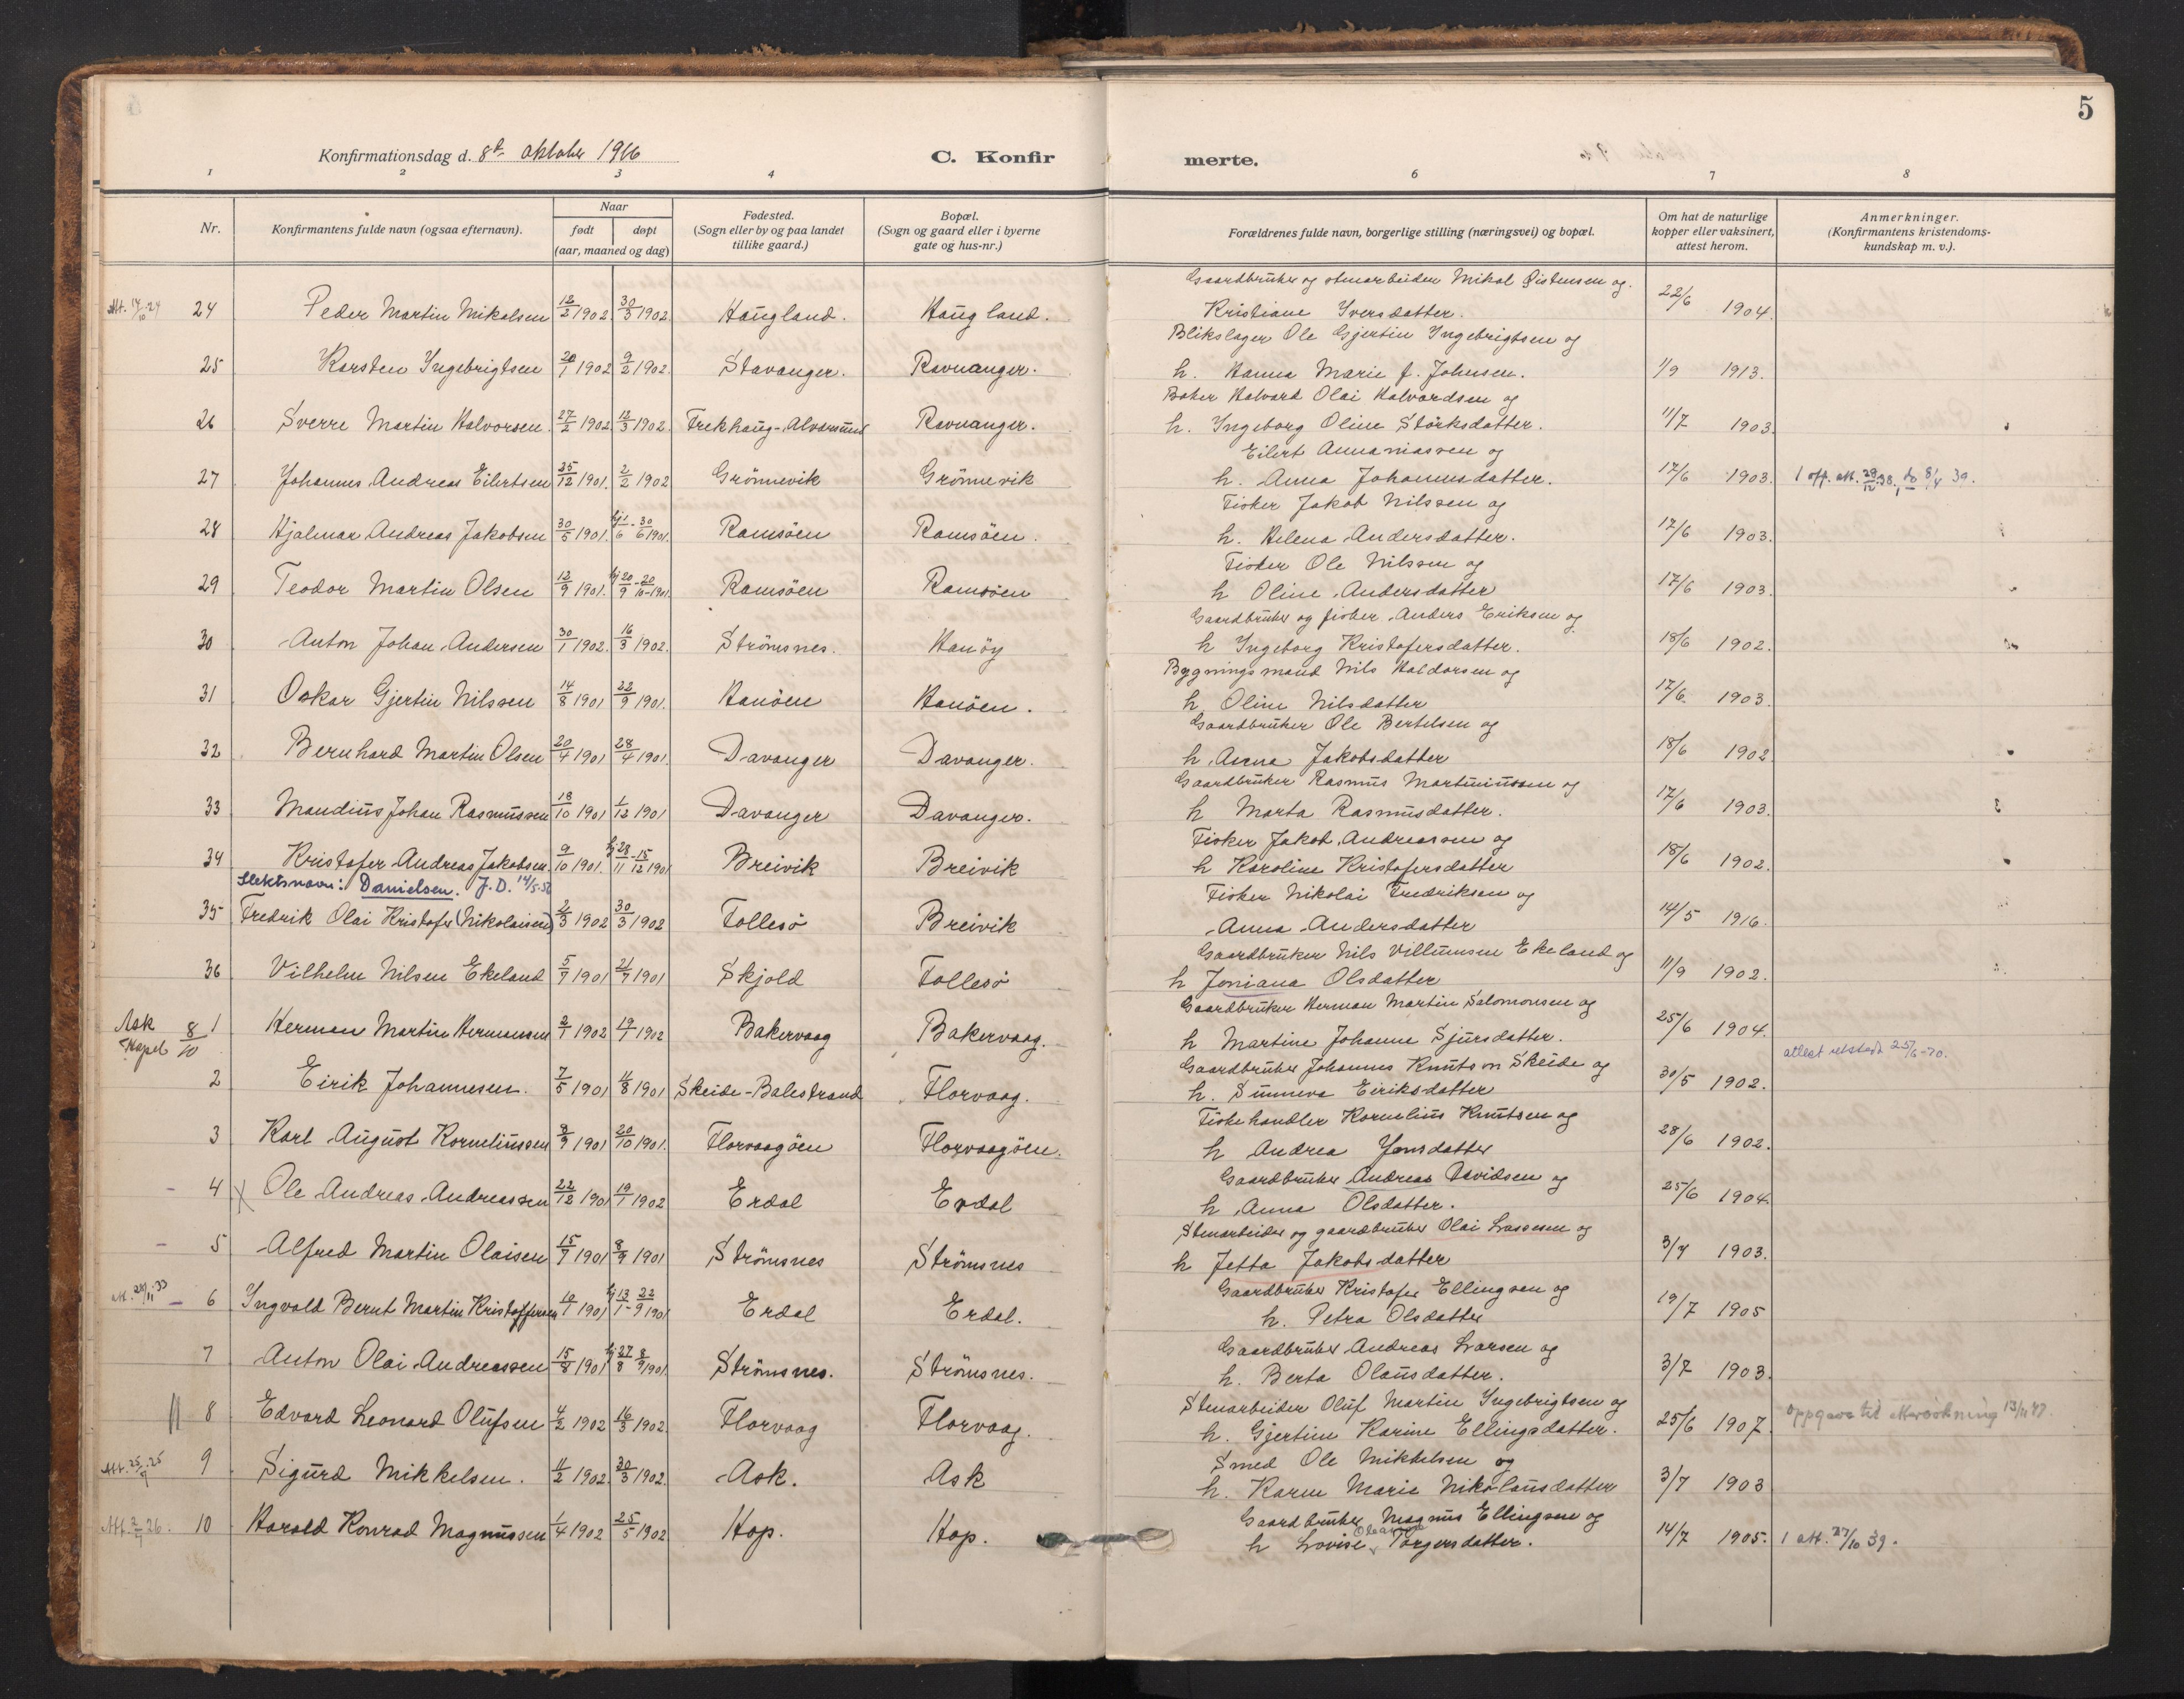 5
Konfirmationsdag d. 8de oktober 1916
C. Konfirmerte.
1 2 3 4 6 7 8
Nr.
Konfirmantens fulde navn (ogsaa efternavn).
Naar
født døpt
(aar, maaned og dag)
Fødested.
(Sogn eller by og paa landet
tillike gaard.)
Bopæl.
(Sogn og gaard eller i byerne
gate og hus-nr.)
Forældrenes fulde navn, borgerlige stilling (næringsvei) og bopæl.
Om hat de naturlige
kopper eller vaksinert,
attest herom.
Anmerkninger.
(Konfirmantens kristendoms-
kundskap m. v.).
Gaardbruker og stenarbeider Mikal Øistensen og
Att. 14/10 24 24 Peder Martin Mikalsen 12/2 1902. 30/3 1902. Haugland. Haugland. Kristiane Iversdatter. 22/6 1904.
Blikslager Ole Gjertin Ingebrigtsen og
25 Karsten Ingebrigtsen 20/1 1902 9/2 1902. Stavanger. Ravnanger. h. Hanna Marie f. Johnsen. 1/9 1913.
Baker Halvard Olai Halvardsen og
26 Sverre Martin Halvorsen. 27/2 1902. 12/3 1902. Frekhaug-Alvørsund Ravnanger. h. Ingeborg Oline Størksdatter. 11/7 1903.
Eilert Annaniassen og
27 Johannes Andreas Eilertsen 25/12 1901. 2/2 1902 Grönnevik Grönnevik h. Anna Johannesdatter. 17/6 1903. 1 off. att. 29/12 38. 1 do 8/4 39.
Fisker Jakob Nilssen og
28 Hjalmar Andreas Jakobsen 30/5 1901. hj 1/6 - 30/6 1901. Ramsöen Ramsöen. h. Helena Andersdatter. 17/6 1903.
Fisker Ole Nilssen og
29 Teodor Martin Olsen 12/9 1901. hj 20/9 - 20/10 1901. Ramsöen Ramsöen h Oline Andersdatter 17/6 1903.
Gaardbruker og fisker Anders Eriksen og
30 Anton Johan Andersen 30/1 1902. 16/3 1902. Strömsnes. Hanöy h Ingeborg Kristofersdatter. 18/6 1902.
Bygningsmand Nils Haldorsen og
31 Oskar Gjertin Nilssen 14/8 1901 22/9 1901. Hanöen Hanöen. h Oline Nilsdatter 17/6 1903.
Gaardbruker Ole Bertelsen og
32 Bernhard Martin Olsen 20/4 1901 28/4 1901. Davanger Davanger. h. Anna Jakobsdatter 18/6 1902
Gaardbruker Rasmus Martiniussen og
33 Mandius Johan Rasmussen 18/10 1901 1/12 1901 Davanger Davanger. h Marta Rasmusdatter. 17/6 1903.
Fisker Jakob Andreassen og
34 Kristofer Andreas Jakobsen 9/10 1901. hj 28/11 - 15/12 1901 Breivik Breivik h Karoline Kristofersdatter 18/6 1902.
Slektsnavn: Danielsen. J.D. 14/5-52
Fisker Nikolai Fredriksen og
35 Fredrik Olai Kristofer (Nikolaisen) 2/3 1902 30/3 1902 Follesö Breivik Anna Andersdatter 14/5 1916.
Gaardbruker Nils Villumsen Ekeland og
36 Vilhelm Nilsen Ekeland 5/7 1901 21/7 1901 Skjold Follesö h Joniana Olsdatter 11/9 1902.
Gaardbruker Herman Martin Salomonsen og
Ask Kapel 8/10 1 Herman Martin Hermansen 2/1 1902 19/1 1902 Bakervaag Bakervaag. h Martine Johanne Sjursdatter. 25/6 1904.
attest utstedt 25/6-70.
Gaardbruker Johannes Knutson Skeide og
2 Eirik Johannessen. 7/5 1901 11/8 1901 Skeide-Balestrand Florvaag. h. Sunneva Eiriksdatter 30/5 1902.
Fiskehandler Kornelius Knutsen og
3 Karl August Korneliussen 8/9 1901 20/10 1901. Florvaagöen Florvaagöen. h Andrea Jonsdatter 28/6 1902.
Gaardbruker Andreas Davidsen og
- 4 X Ole Andreas Andreassen 22/12 1901 19/1 1902 Erdal Erdal h Anna Olsdatter. 25/6 1904.
Stenarbeider og gaardbruker Olai Lassesen og
- 5 Alfred Martin Olaisen 15/7 1901 8/9 1901 Strömsnes Strömsnes h Jetta Jakobsdatter 3/7 1903.
Gaardbruker Kristofer Ellingsen og
att. 28/11 33 - 6 Ingvald Bernt Martin Kristoffersen 10/1 1901 hj 13/1 - 22/9 1901 Erdal Erdal. h. Petra Olsdatter 19/7 1905
Gaardbruker Andreas Larsen og
7 Anton Olai Andreassen 15/8 1901 hj 27/8 8/9 1901. Strömsnes. Strömsnes. h. Berta Olausdatter. 3/7 1903.
Stenarbeider Oluf Martin Ingebrigtsen og
8 Edvard Leonard Olufsen 4/2 1902 16/3 1902. Florvaag Florvaag. h. Gjertine Karine Ellingsdatter. 25/6 1907. oppgave til 13/11 47.
Smed Ole Mikkelsen og
Att. 25/7 25 9 Sigurd Mikkelsen. 11/2 1902. 30/3 1902. Ask. Ask h. Karen Marie Nikolausdatter 3/7 1903
Gaardbruker Magnus Ellingsen og
Att. 2/7 26. 10 Harald Konrad Magnussen 1/4 1902 25/5 1902 Hop. Hop. h Lovise Oleanna Torgersdatter. 14/7 1905. 1 att. 27/10 39.